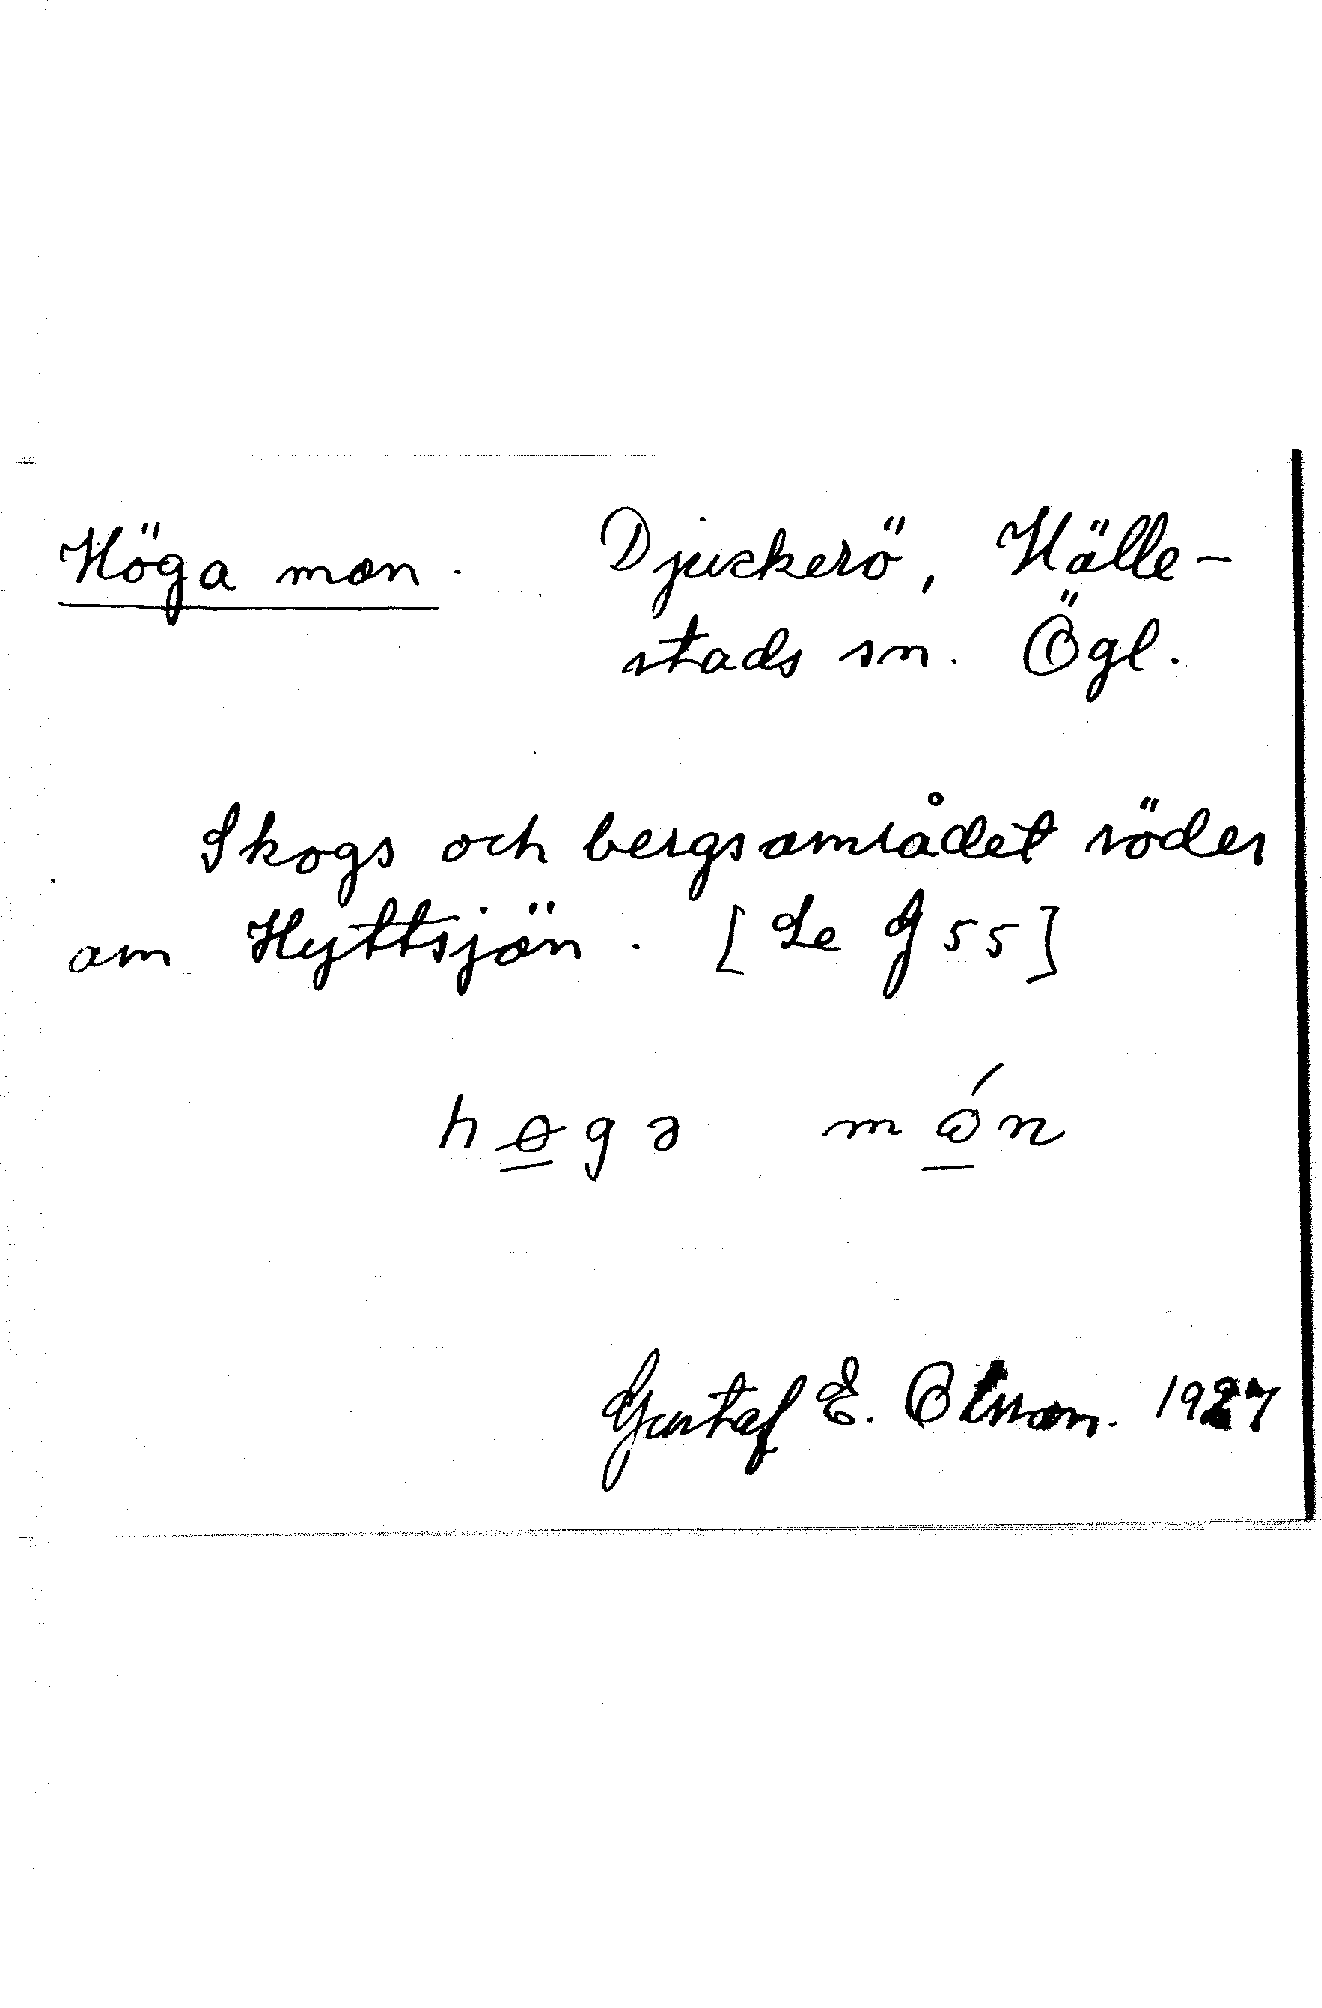 Höga mon. Djuckerö, Hälle-
stads sn. Ögl.
Skogs och bergsområdet söder
om Hyttsjön. [Se J 55]
høgə món
Gustaf E. Olsson. 1927